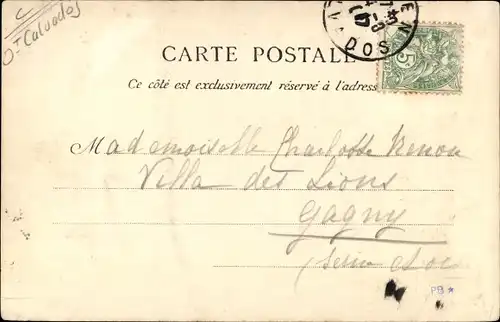 Dt Calvados
CARTE POSTALE
Ce côté est exclusivement réservé à l'adress
5
DOS
Mademoiselle Charlotte Renou
Villa des Lions
Gagny
Seine et Oise
PB *